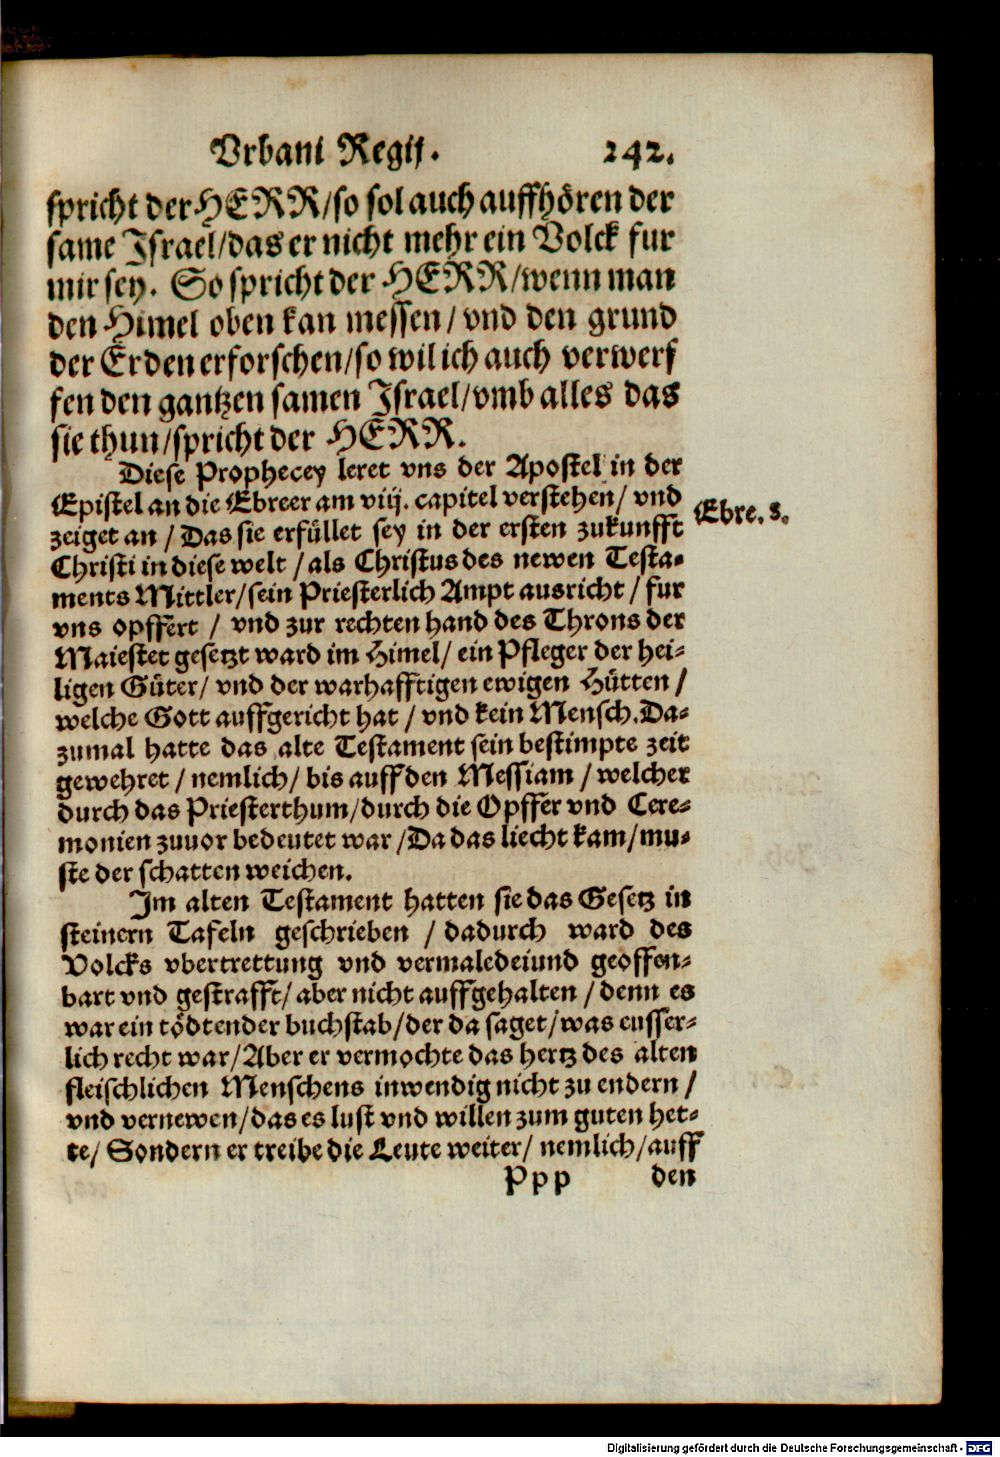 Vrbani Regij. 242.
spricht der HERR/so sol auch auffhören der
same Israel/das er nicht mehr ein Volck fur
mir sey. So spricht der HERR/wenn man
den Himel oben kan messen/vnd den grund
der Erden erforschen/so wil ich auch verwerf
fen den gantzen samen Israel/vmb alles das
sie thun/spricht der HERR.
Diese Prophecey leret vns der Apostel in der
Epistel an die Ebreer am viij. capitel verstehen/ vnd
Ebre. 8.
zeiget an / Das sie erfüllet sey in der ersten zukunfft
Christi in diese welt / als Christus des newen Testa-
ments Mittler/sein Priesterlich Ampt ausricht / fur
vns opffert / vnd zur rechten hand des Throns der
Maiestet gesetzt ward im Himel/ ein Pfleger der hei-
ligen Güter/ vnd der warhafftigen ewigen Hütten /
welche Gott auffgericht hat / vnd kein Mensch. Da-
zumal hatte das alte Testament sein bestimpte zeit
gewehret / nemlich/ bis auff den Messiam / welcher
durch das Priesterthum/durch die Opffer vnd Cere-
monien zuuor bedeutet war /Da das liecht kam/mu-
ste der schatten weichen.
Im alten Testament hatten sie das Gesetz in
steinern Tafeln geschrieben / dadurch ward des
Volcks vbertrettung vnd vermaledeiund geoffen-
bart vnd gestrafft/ aber nicht auffgehalten / denn es
war ein tödtender buchstab/der da saget/was eusser-
lich recht war/Aber er vermochte das hertz des alten
fleischlichen Menschens inwendig nicht zu endern /
vnd vernewen/das es lust vnd willen zum guten het-
te/ Sondern er treibe die Leute weiter/ nemlich/auff
Ppp den
Digitalisierung gefördert durch die Deutsche Forschungsgemeinschaft - DFG